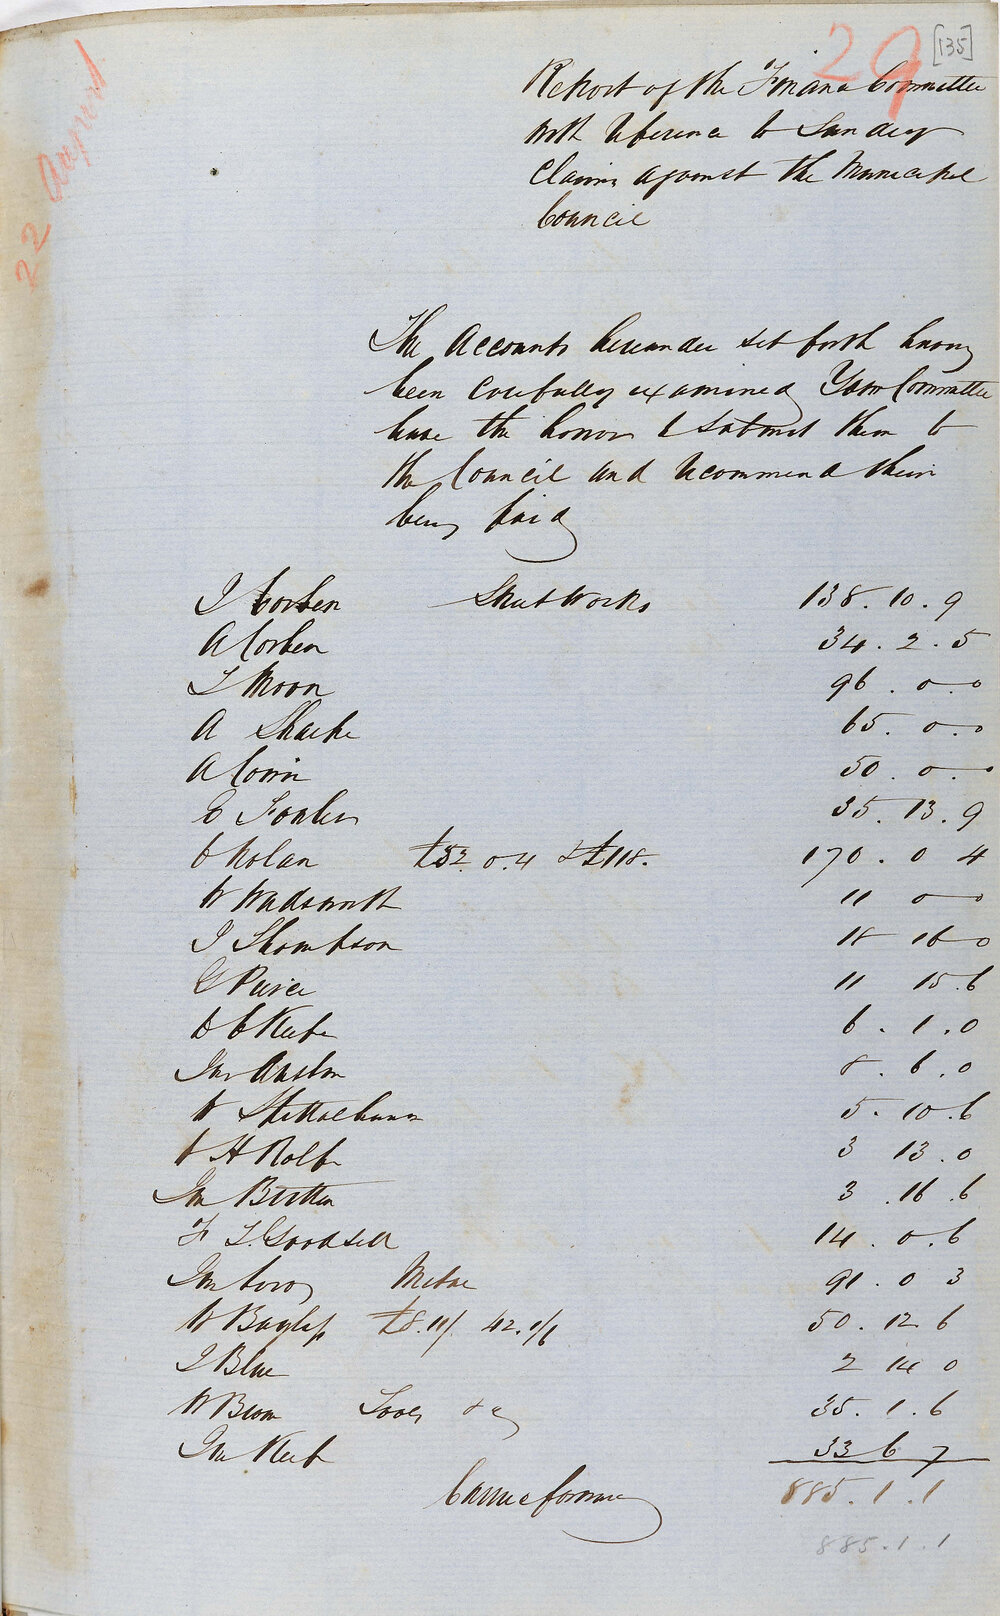 29 [135]
22 August
Report of the Finance Committee
with reference to Sundry
Claims against the Municipal
Council
The Accounts hereunder set forth having
been carefully examined Your Committee
have the honor to submit them to
the Council and recommend their
being paid
J Corben Street Works 138. 10. 9
A Corben 34. 2. 5
T Moon 96. 0. 0
A Sharke 65. 0. 0
A 50. 0. 0
E Fowler 35. 13. 9
Nolan £52. 0. 4 & £118. 170. 0 4
W Wadsworth 11 0 0
J Thompson 18 16 0
G Peirce 11 15. 6
O'Keefe 6. 1. 0
Jno Austin 8. 6. 0
W 5. 10. 6
H Rolfe 3 13. 0
Jno Britten 3. 16. 6
F T. Goodsell 14. 0. 6
Jno Metal 91. 0 3
W Bayliss £8. 11/. 42. 1/6 50. 12. 6
J Blue 2 14 0
W Brown Tools &c 35. 1. 6
Jno Keep 33 6 7
Carried forward 885. 1. 1
885. 1. 1